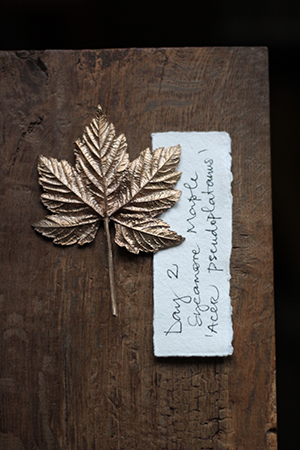 Day 2
Sycamore Maple
'Acer pseudoplatanus'